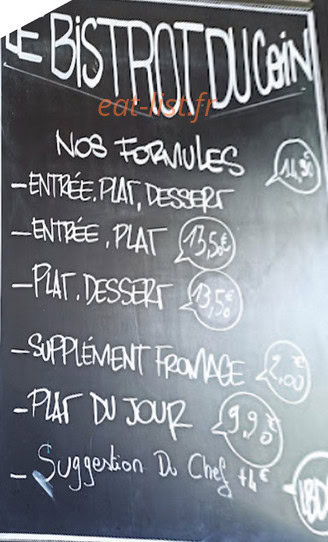 LE BISTROT DU COIN
eat-list.fr
NOS FORMULES
14,90€
- ENTRÉE, PLAT, DESSERT
- ENTRÉE, PLAT 13,50€
- PLAT, DESSERT 13,50€
- SUPPLÉMENT FROMAGE 2,00€
- PLAT DU JOUR 9,90€
- Suggestion Du Chef +4€
LBDC